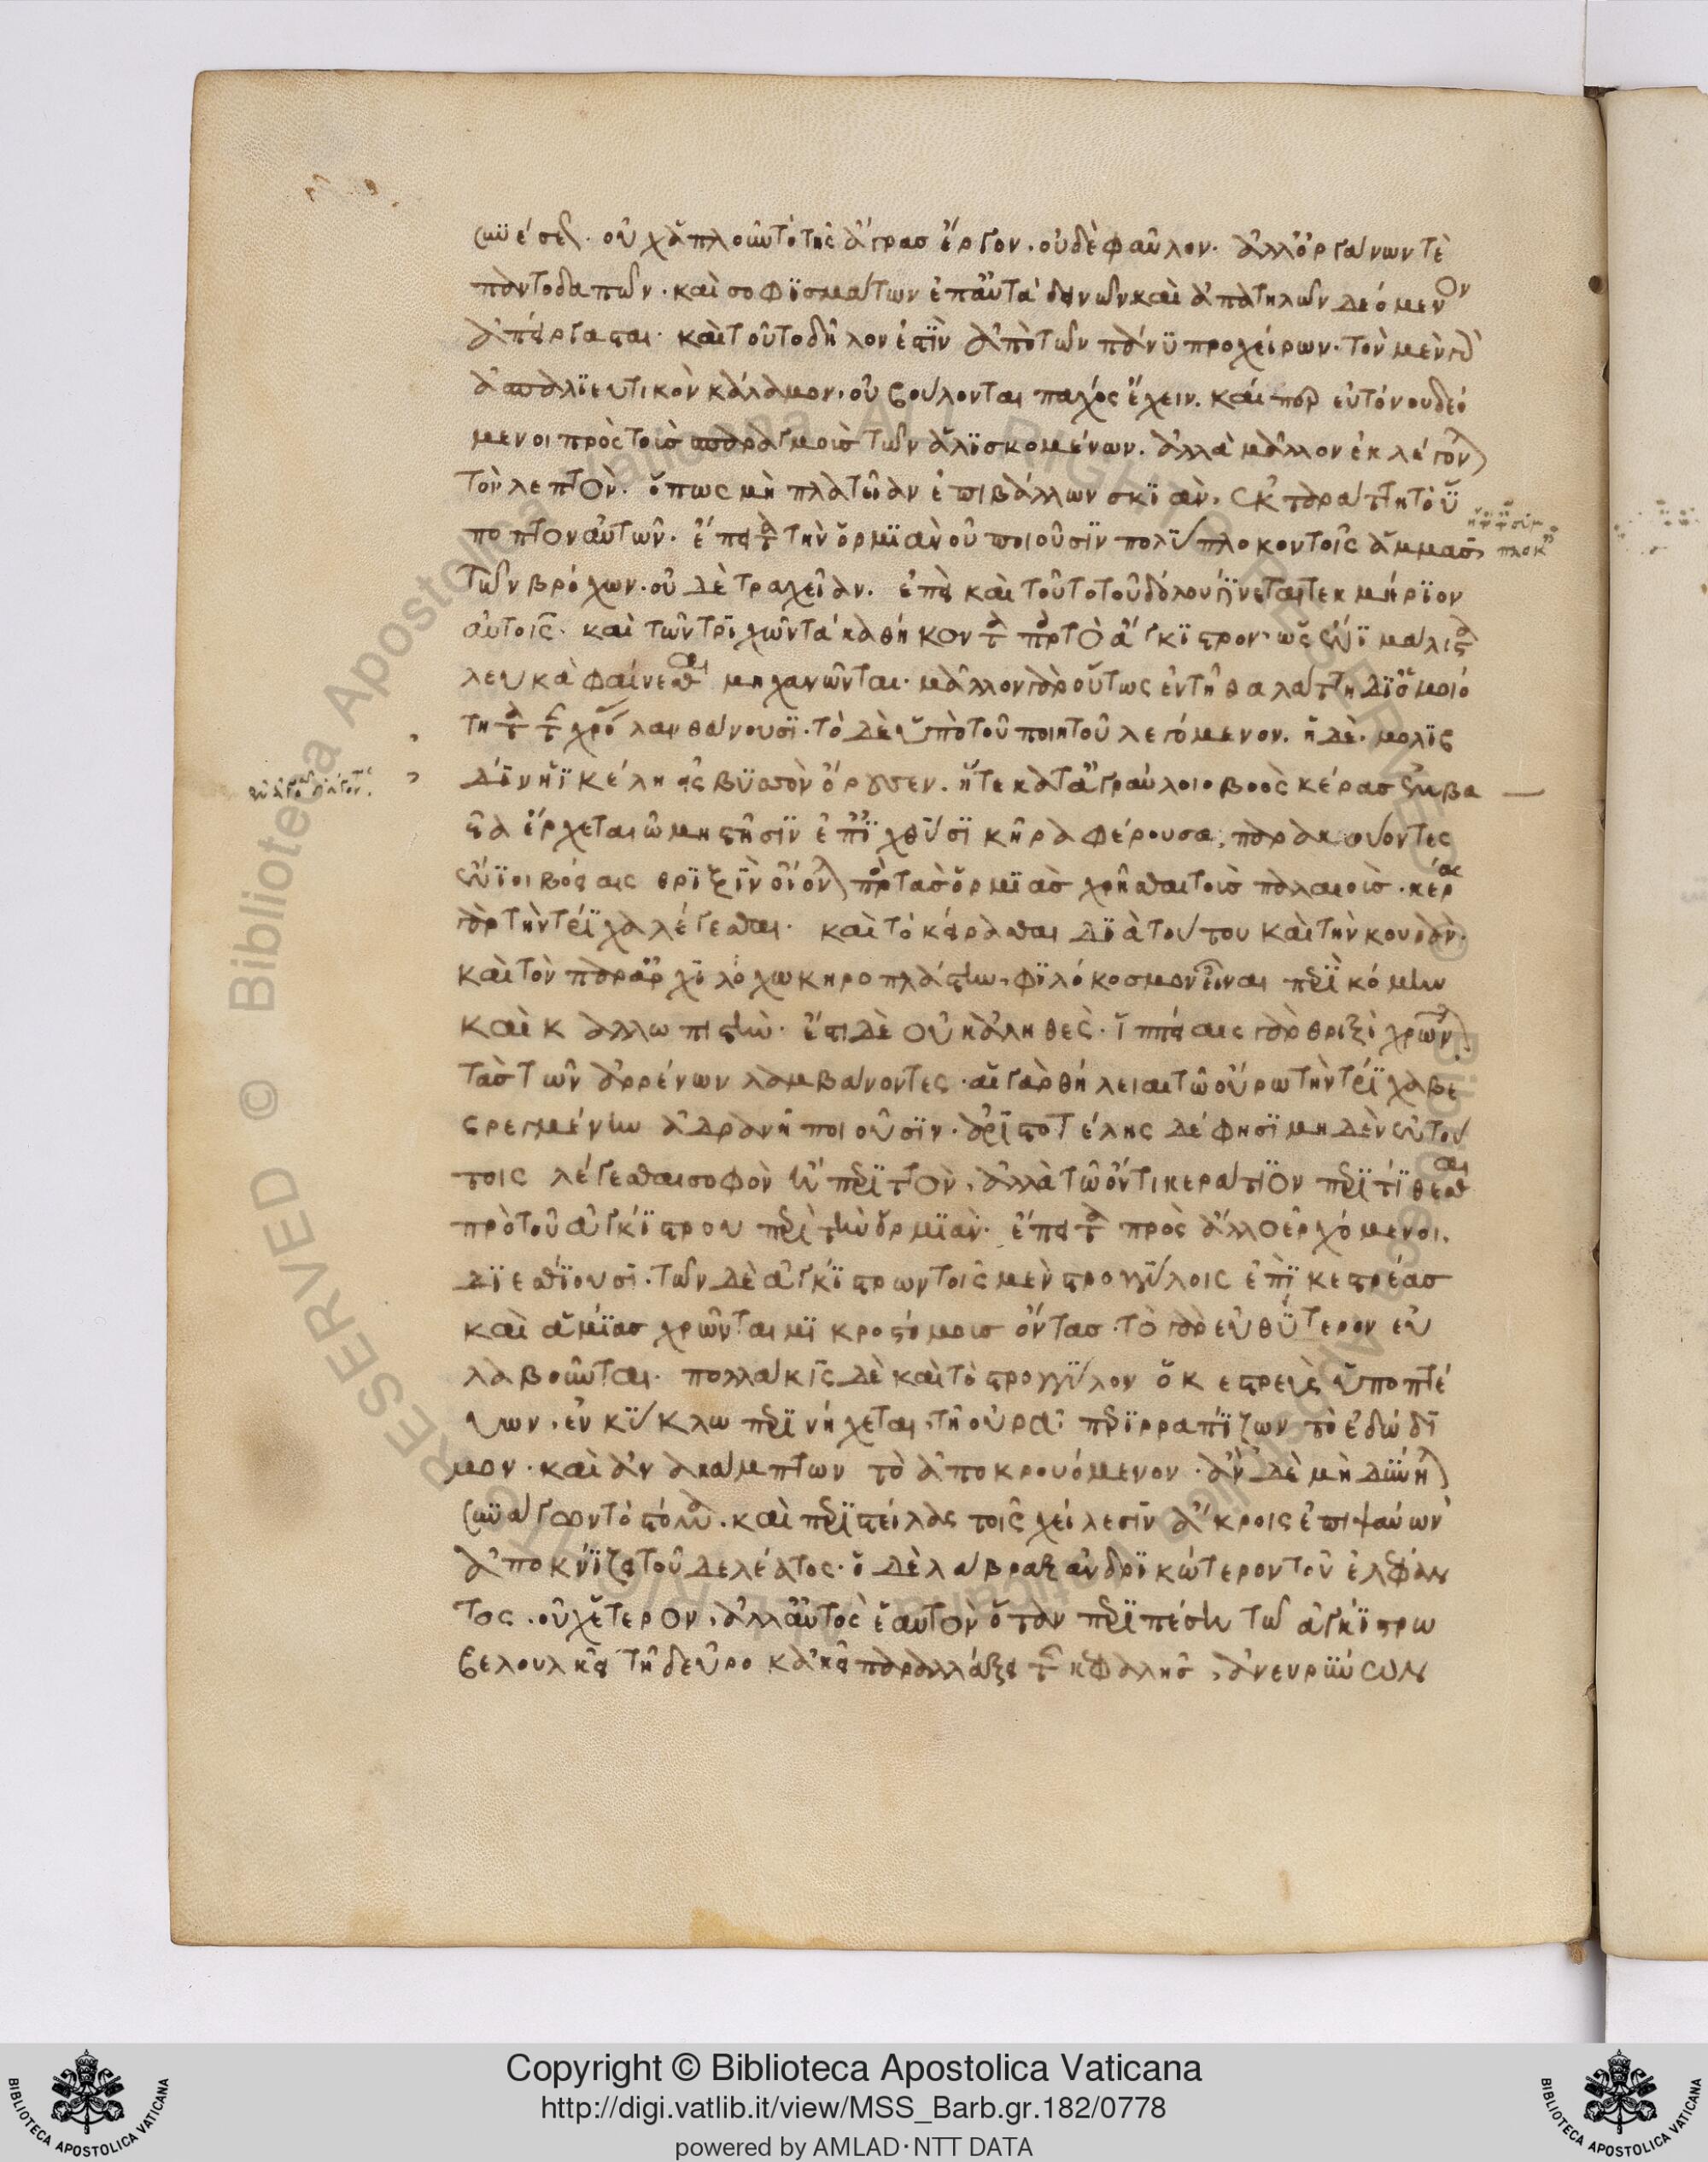 συνέσει. οὐχ ἁπλοῦν τὸ τῆς ἄγρας ἔργον. οὐδὲ φαῦλον. ἀλλ' ὀργάνων τὲ
παντοδαπῶν. καὶ σοφϊσμάτων ἐπ' αὐτὰ δεινῶν καὶ ἀπατηλῶν δεόμενον
ἀπείργασται. καὶ τοῦτο δῆλον ἐστὶν ἀπὸ τῶν πάνϋ προχείρων. τὸν μὲν γὰρ
ἀσπαλϊευτικὸν κάλαμον. οὐ βούλονται παχὺς ἔχειν. καίπερ εὐτόνου δεό
μενοι πρὸς τοὶς σπαραγμοὶς τῶν ἁλϊσκομένων. ἀλλὰ μᾶλλον ἐκλέγονται
τὸν λεπτὸν. ὅπως μὴ πλατεῖαν ἐπιβάλλων σκϊὰν, ἐκταράττη τὸ ὕ
ποπτον αὐτῶν. ἔπειτα τὴν ὁρμϊὰν οὐ ποιοῦσϊν πολύπλοκον τοῖς ἅμμασι
τῶν βρόχων. οὐδὲ τραχεῖαν. ἐπεὶ καὶ τοῦτο τοῦ δόλου γίνεται τεκμήρϊον
αὐτοῖς. καὶ τῶν τριχῶν τὰ καθήκοντα πρὸς τὸ ἄγκϊστρον. ὡς ἔνϊ μάλιστα
λευκὰ φαίνεσθαι μηχανῶνται. μᾶλλον γὰρ οὕτως ἐν τῆ θαλάττη δϊ ὁμοιό
τητα τῆς χρόας λανθάνουσϊ. τὸ δὲ ὑπὸ τοῦ ποιητοῦ λεγόμενον. ἡ δὲ. μολϊς
δίνη ἴκέλη εἰς βϋσσὸν ὄρουσεν. ἥτε κατ' ἀγραύλοιο βοὸς κέρας ἐμβα
ῦα ἔρχεται ὠμηστῆσϊν ἐπ' ϊχθύσϊ κῆρα φέρουσα, παρακούοντες
ἔνϊοι βοείαις θριξὶν οἴονται πρὸς τὰς ὁρμϊὰς χρῆσθαι τοὶς παλαιοὶς. κέρας
γὰρ τὴν τρίχα λέγεσθαι. καὶ τὸ κείρασθαι δϊὰ τούτου καὶ τὴν κουρὰν.
καὶ τὸν παρ' ἀρχϊλόχω κηροπλάστην, φϊλόκοσμον εἶναι περὶ κόμην
καὶ καλλωπιστὴν. ἔστι δὲ οὐκ ἀληθὲς. ἵππείαις γὰρ θριξὶ χρῶνται
τὰς τῶν ἀρρένων λαμβάνοντες. αἱ γὰρ θήλειαι τῶ οὔρω τὴν τρίχα βε
βρεγμένην ἀδρανῆ ποιοῦσϊν. ἀρϊστοτέλης δέ φησϊ μηδὲν ἐν τού
τοις λέγεσθαι σοφὸν ἢ περιττὸν, ἀλλὰ τῶ ὄντι κεράτϊον περιτίθεσθαι
πρὸ τοῦ ἀγκίστρου περὶ τὴν ὁρμϊὰν. ἔπειτα πρὸς ἄλλο ἐρχόμενοι.
δϊεσθίουσϊ. τῶν δὲ ἀγκίστρων τοῖς μὲν στρογγύλοις ἐπὶ κεστρέας
καὶ ἀμίας χρῶνται μϊκροστόμοις ὄντας. τὸ γὰρ εὐθύτερον εὐ
λαβοῦνται. πολλάκις δὲ καὶ τὸ στρογγύλον ὁ κεστρεὺς ὑποπτε
ύων, ἐν κύκλω περινήχεται, τῆ οὐρᾶ περιρραπίζων τὸ ἐδώδϊ
μον. καὶ ἀνακάμπτων τὸ ἀποκρουόμενον. ἂν δὲ μὴ δύνηται
συνάγων τὸ στόμα. καὶ περιστείλας τοῖς χείλεσιν ἄκροις ἐπιψαύων
ἀποκνίζει τοῦ δελέατος. ὁ δὲ λάβραξ ἀνδρϊκώτερον τοῦ ἐλέφαν
τος. οὐχ ἕτερον, ἀλλ' αὐτὸς ἑαυτὸν ὅταν περιπέση τῶ ἀγκίστρω
βελουλκεῖ τῆ δεῦρο κἀκεῖ παραλλάξει τῆς κεφαλῆς, ἀνευρύνων